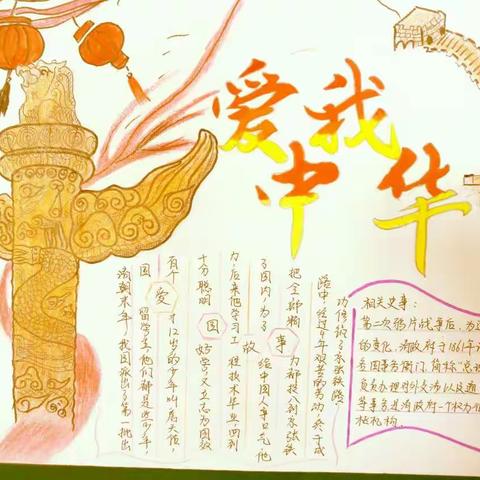 爱我
中华
爱国故事
清朝末年，我国派出了第一批出
国留学生，他们都是些少年，
有个12岁的少年叫詹天佑，
十分聪明好学又立志为国效
力，后来他学习工程技术毕业，回到
了国内，为了给中国人争口气，他
把全部精力都投入到京张铁
路中，经过4年艰苦的劳动，终于成
功修筑了京张铁路。
相关史事：
第二次鸦片战争后，为
的变化，清政府于1861年
各国事务衙门，简称“总
负责办理对外交涉以及通
等事务是清政府一个权力
枢机构。